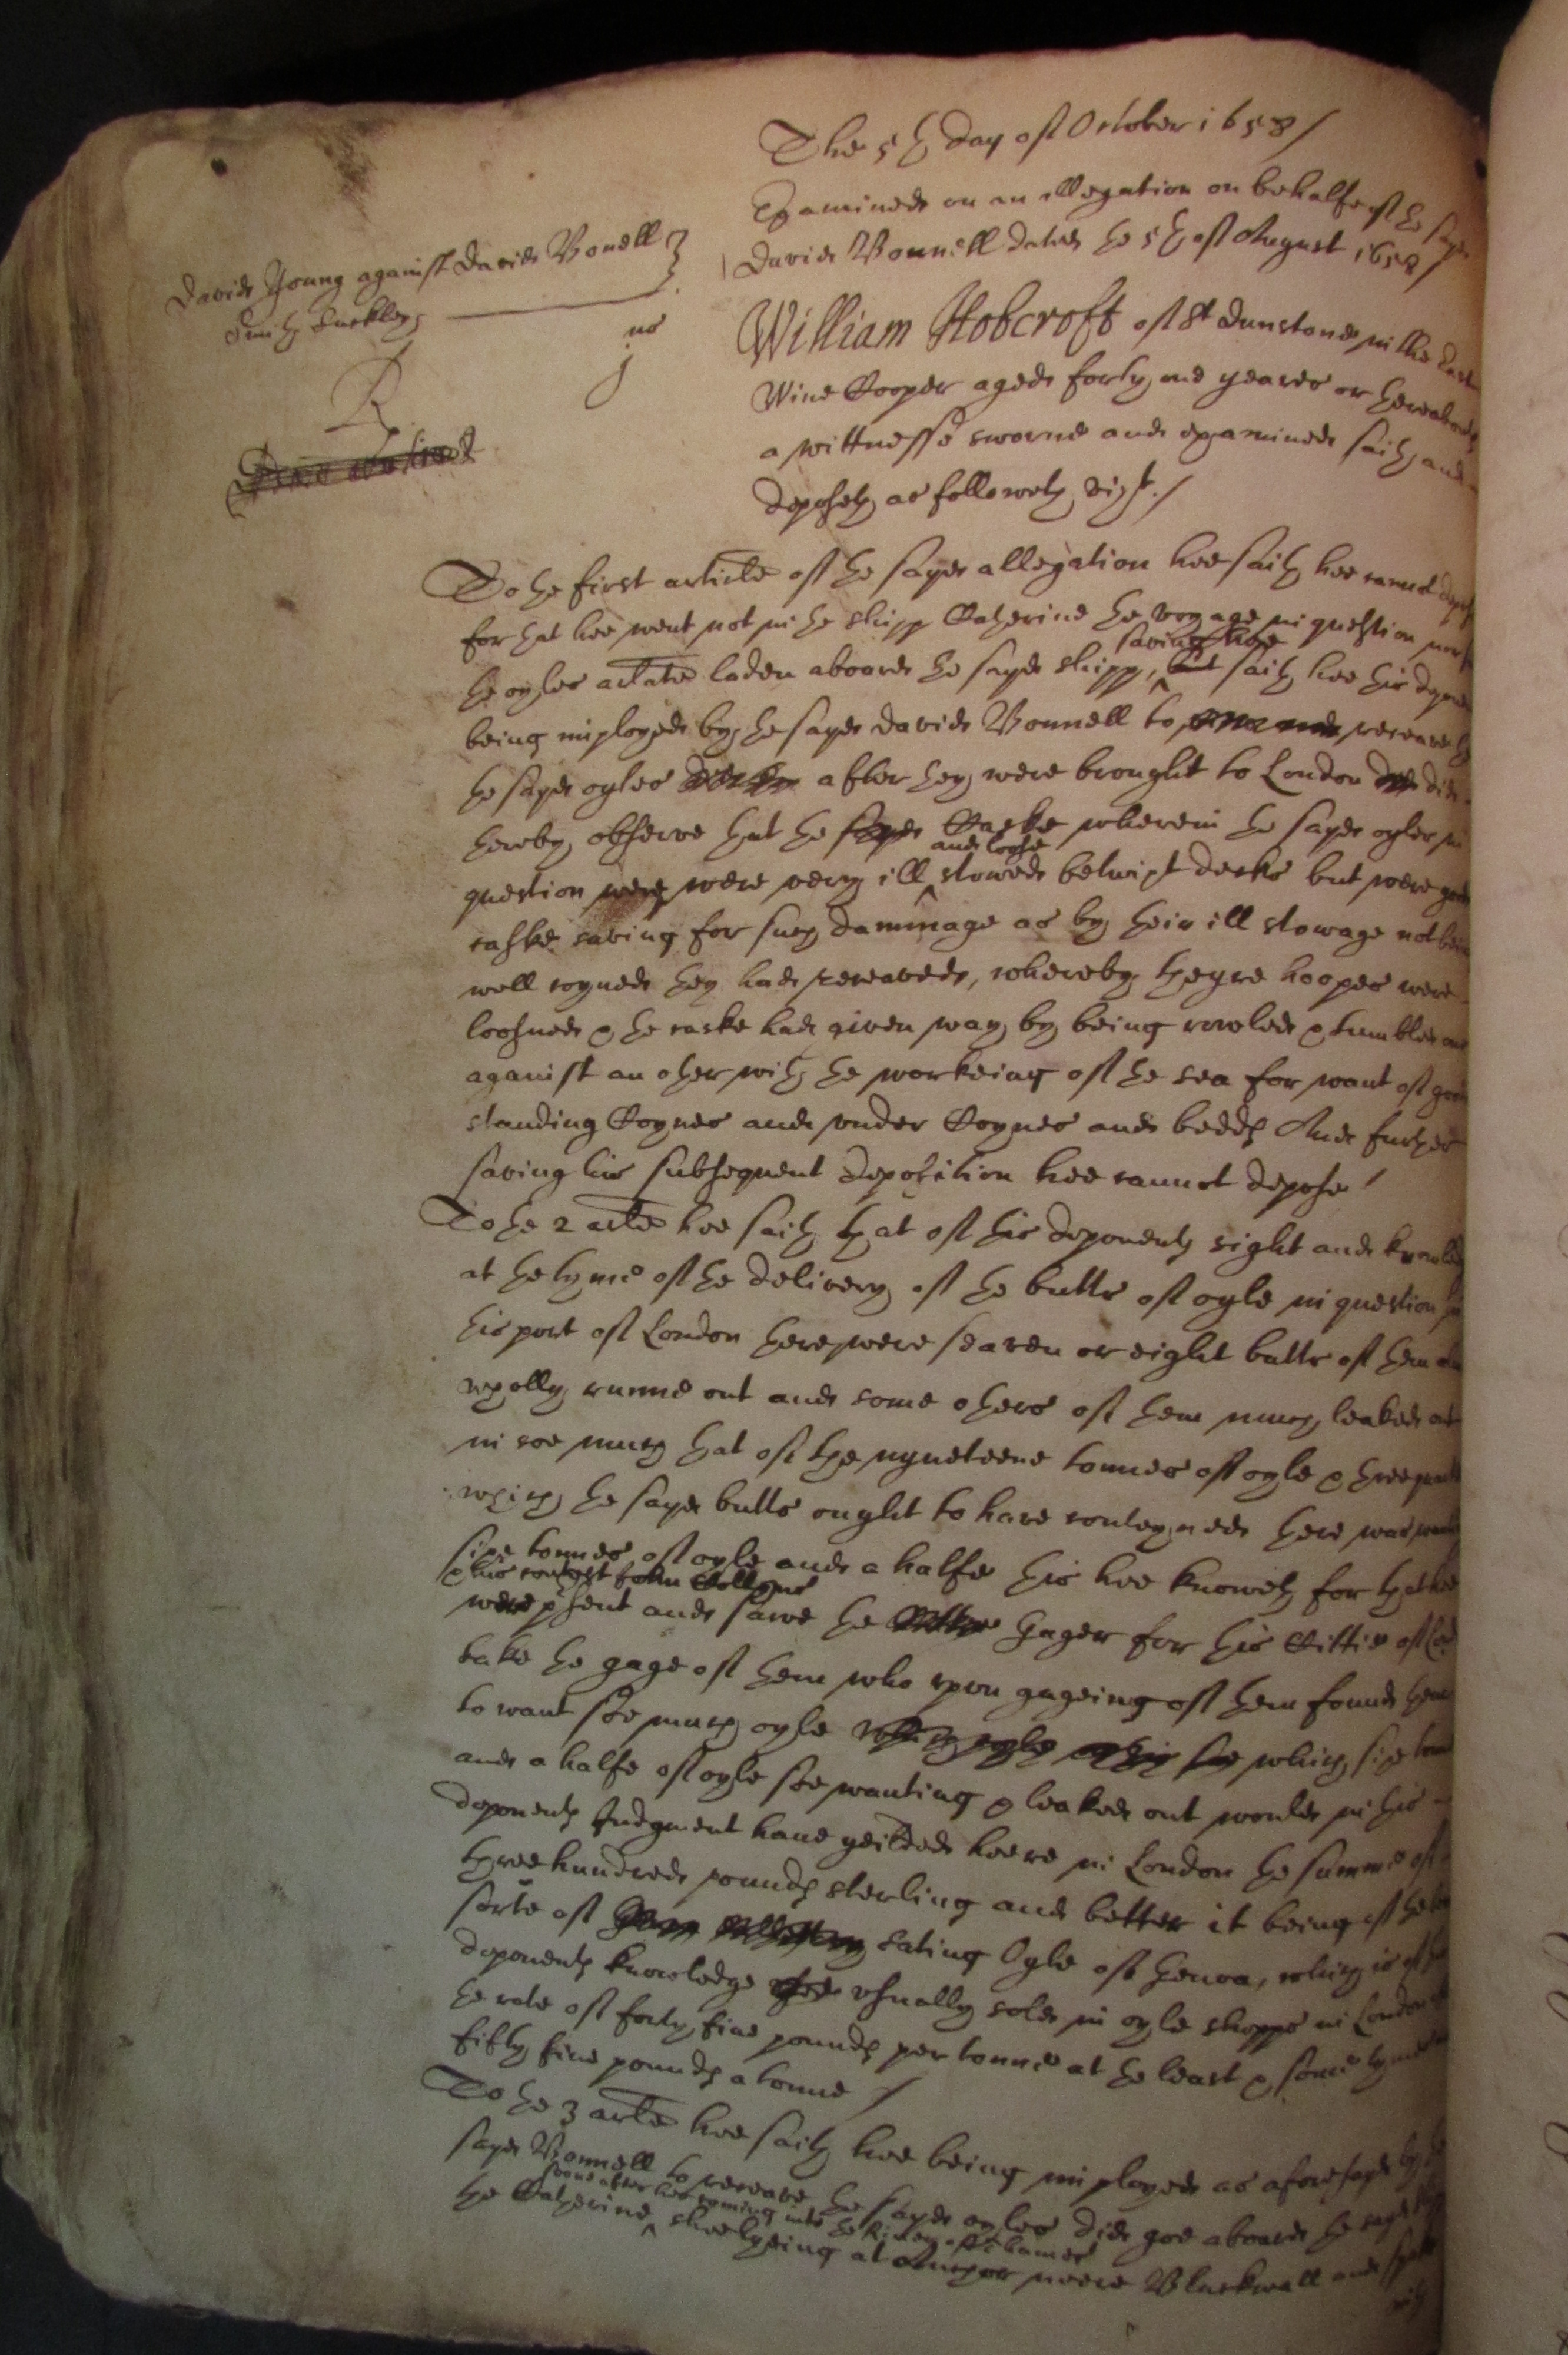 The 5th day of October 1658/
Examined on an allegation on behalfe of the sayd
David Bonnell dated the 5th of August 1658/
David Young against David Bonell
Smith Suckley
R
William Hobcroft of St Dunstons in the East
Wine Cooper aged forty one yeares or thereabouts
a wittnesse sworne and examined saith and
deposeth as followeth vizt./
To the first article of the sayd allegation hee saith hee cannot depose
for that hee went not in the shipp Katherine the voyage in question nor
the oyles arlate laden aboard the sayd shipp, saving hee but saith hee this deponent
being imployed by the sayd David Bonnell to receave
the sayd oyles after they were brought to London did
thereby observe that the sayd Caske wherein the sayd oyles in
question were very ill and loose stowed betwixt decks but were good
caske saving for such dammage as by their ill stowage not being
well coyned they had receaved, whereby theyre hoopes were
loosned & the caske had given way by being rowled & tumbled one
against an other with the workeing of the sea for want of good
standing Coynes and under Coynes and bedds And further
saving his subsequent deposition hee cannot depose/
To the 2 arlate hee saith that of this deponents sight and knowledge
at the tyme of the delivery of the butts of oyle in question in
this port of London there were seaven or eight butts of them
wholly runne out and some others of them much leaked out
in soe much that of the nyneteene tonnes of oyle &
which the sayd butts ought to have conteyned there was wanting
sixe tonnes of oyle and a halfe this hee knoweth for that hee
& his contest John Collyns
were present and sawe the Gager for this Cittie of London
take the gage of them who upon gageing of them found them
to want soe much oyle which sixe tonnes
and a halfe of oyle soe wanting & leaked out would in this
deponents Judgment have yeilded heere in London the summe of
three hundred pounds sterling and better it being of the best
sorte of eating Oyle of Genoa, which is of this
deponents knowledge usually sold in oyle shopps in London at
the rate of forty five pounds per tonne at the least & some tymes
fifty five pounds a tonne /
To the 3 arlate hee saith hee being imployed as aforesayd by the
sayd Bonnell to receave the sayd oyles did goe aboard the sayd shipp
soone after her coming into the River of Thames
the Katherine, shee lyeing at Anchor neere Blackwall and